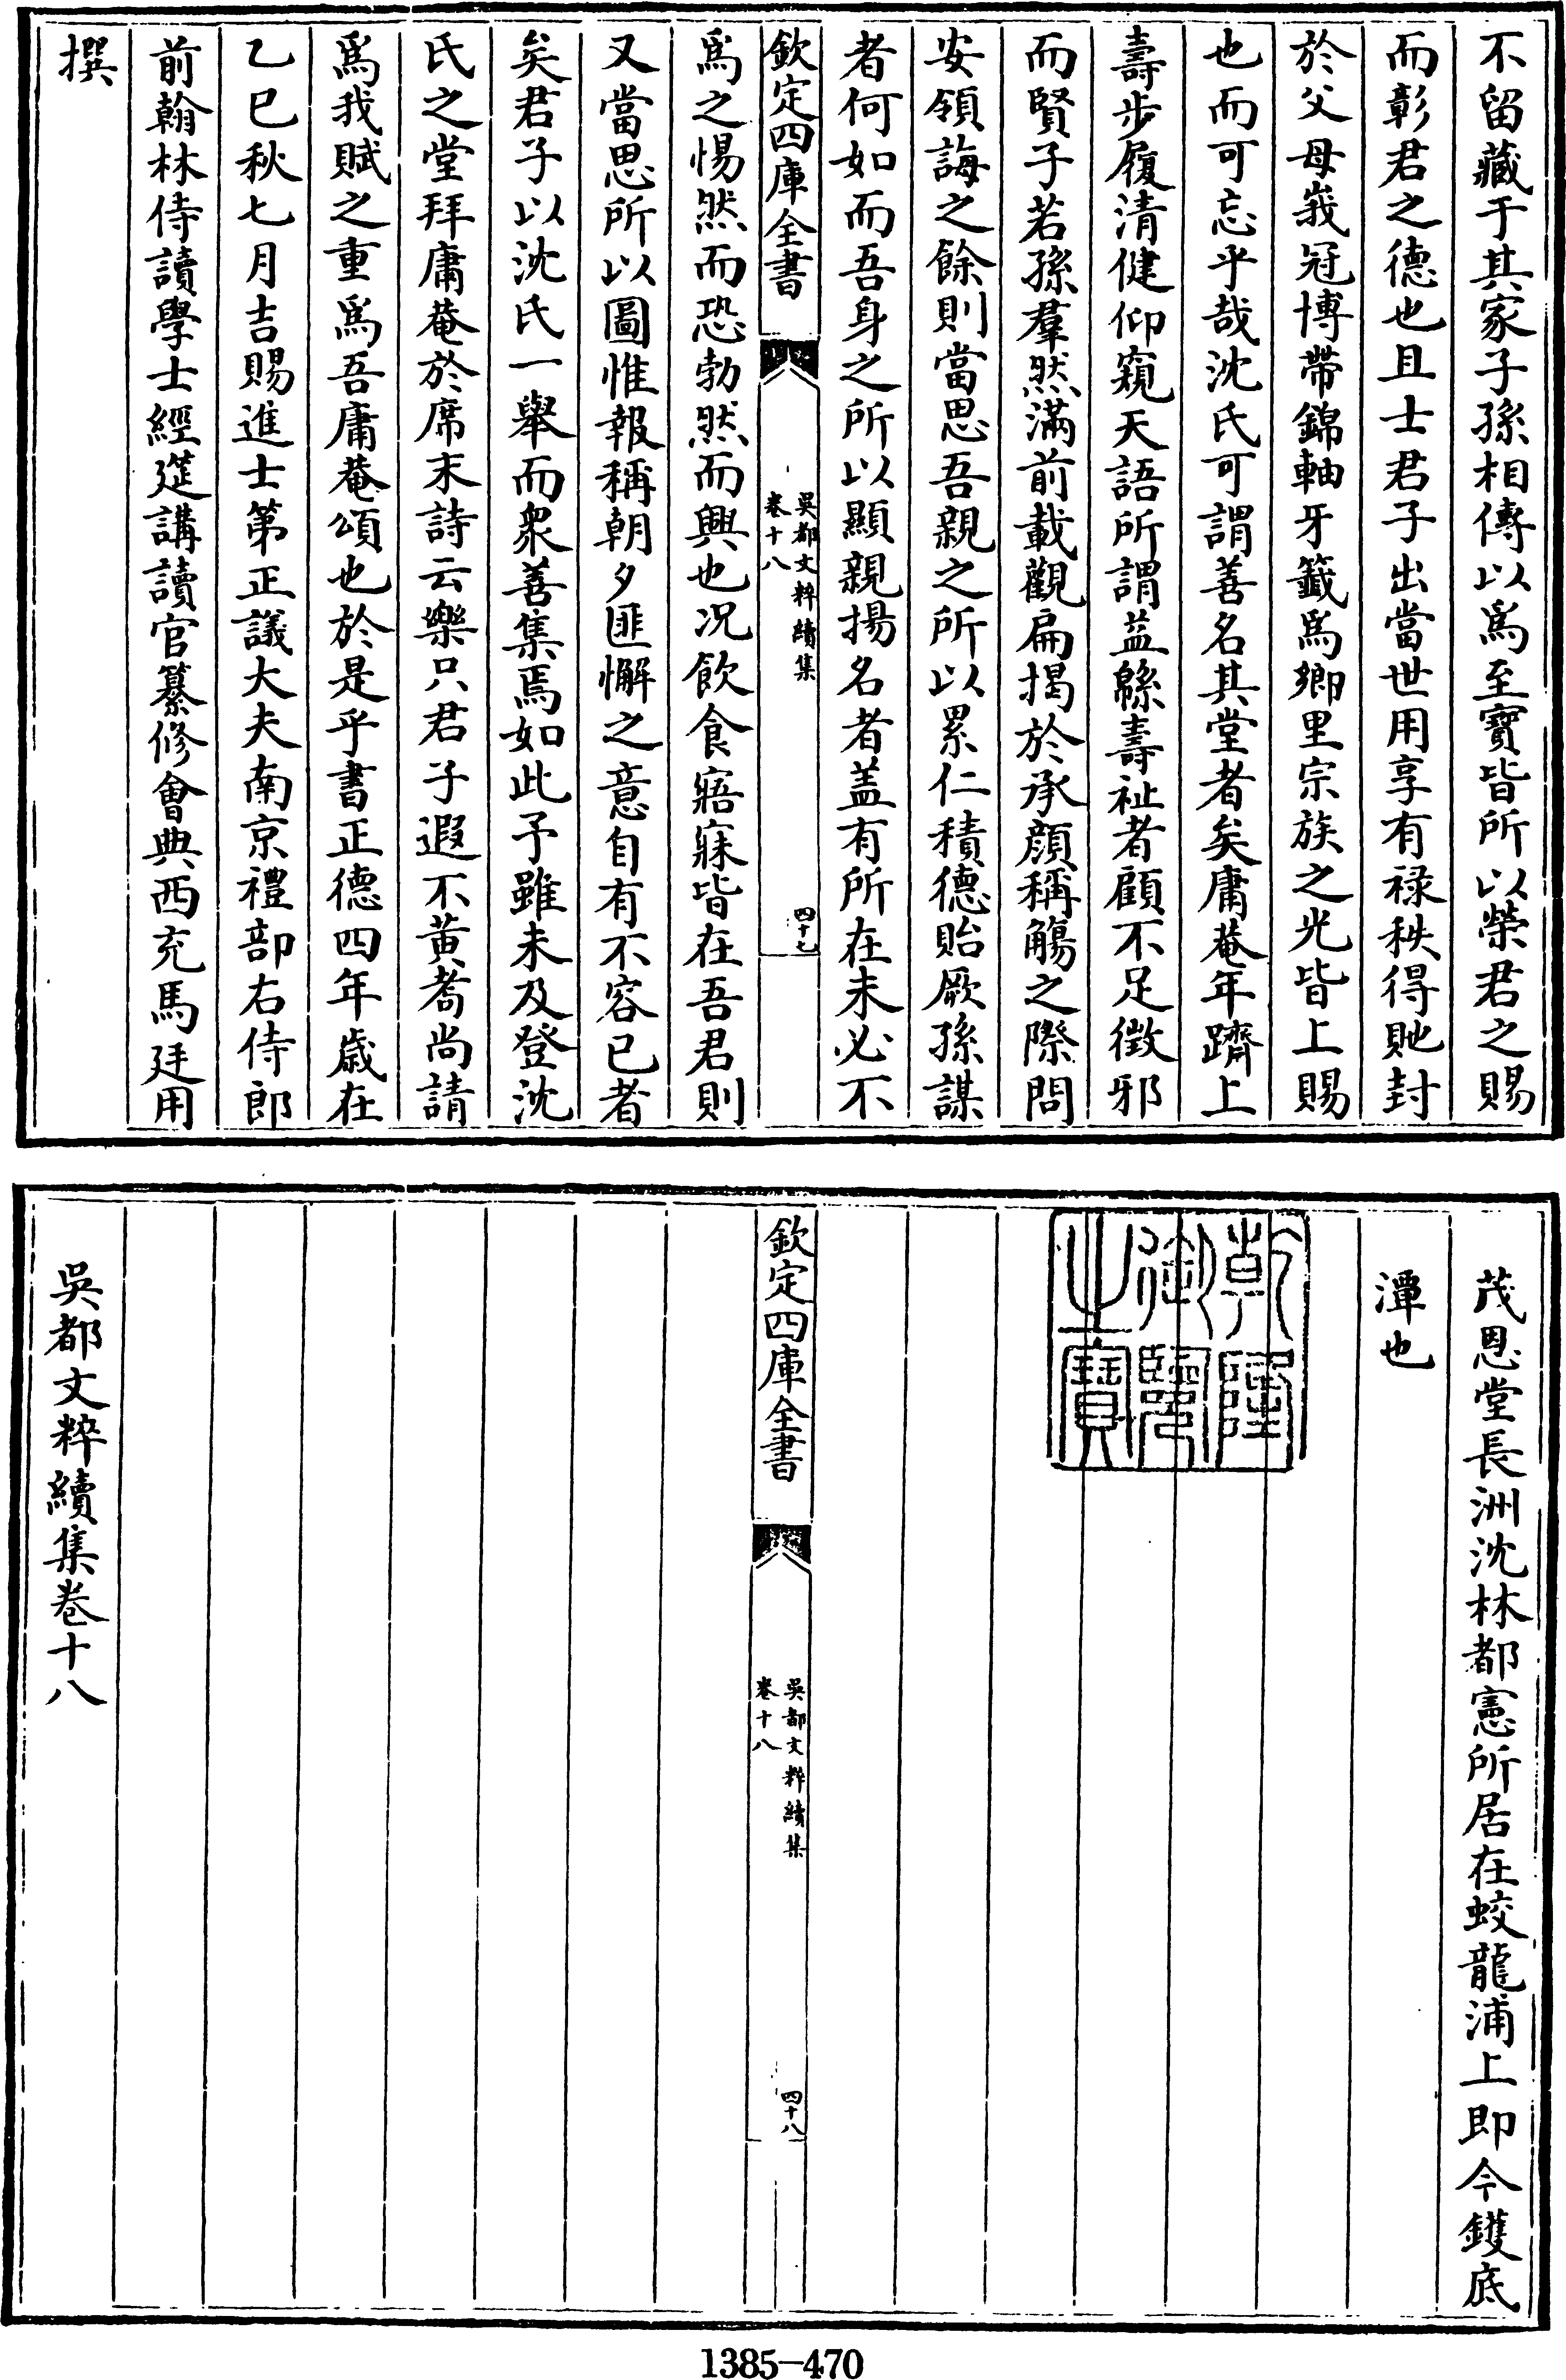 不留藏于其家子孫相傳以爲至寶皆所以榮君之賜
而彰君之德也且士君子出當世用享有祿秩得貤封
於父母峩冠博帶錦軸牙籤爲鄉里宗族之光皆上賜
也而可忘乎哉沈氏可謂善名其堂者矣庸菴年躋上
壽步履清健仰窺天語所謂益綿壽祉者顧不足徵邪
而賢子若孫羣然滿前載觀扁揭於承顔稱觴之際問
安領誨之餘則當思吾親之所以累仁積德貽厥孫謀
者何如而吾身之所以顯親揚名者盖有所在未必不
欽定四庫全書
吳都文粹續集
卷十八
四十七
爲之惕然而恐勃然而興也况飲食寤寐皆在吾君則
又當思所以圖惟報稱朝夕匪懈之意自有不容已者
矣君子以沈氏一舉而衆善集焉如此予雖未及登沈
氏之堂拜庸菴於席末詩云樂只君子遐不黃耉尚請
爲我賦之重爲吾庸菴頌也於是乎書正德四年歲在
乙巳秋七月吉賜進士第正議大夫南京禮部右侍郎
前翰林侍讀學士經筵講讀官纂修會典西充馬廷用
撰
茂恩堂長洲沈林都憲所居在蛟龍浦上即今鑊底
潭也
乾隆
御覽
之寶
欽定四庫全書
吳都文粹續集
卷十八
四十八
吳都文粹續集卷十八
1385-470